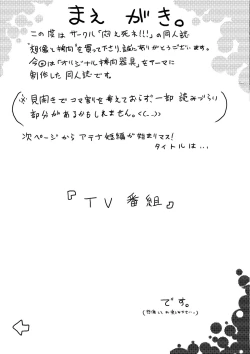 まえがき。
この度はサークル「悶え死ね!!!」の同人誌
"想像と拷問"を買って下さり、誠にありがとうございます。
今回は「オリジナル拷問器具」をテーマに
制作した同人誌です。
(※見開きでコマ割りを考えておらず、一部 読みづらい
部分があるかもしれません。<(_ _)>)
次ページからアテナ姫編が始まります!
タイトルは...
『TV番組』
です。